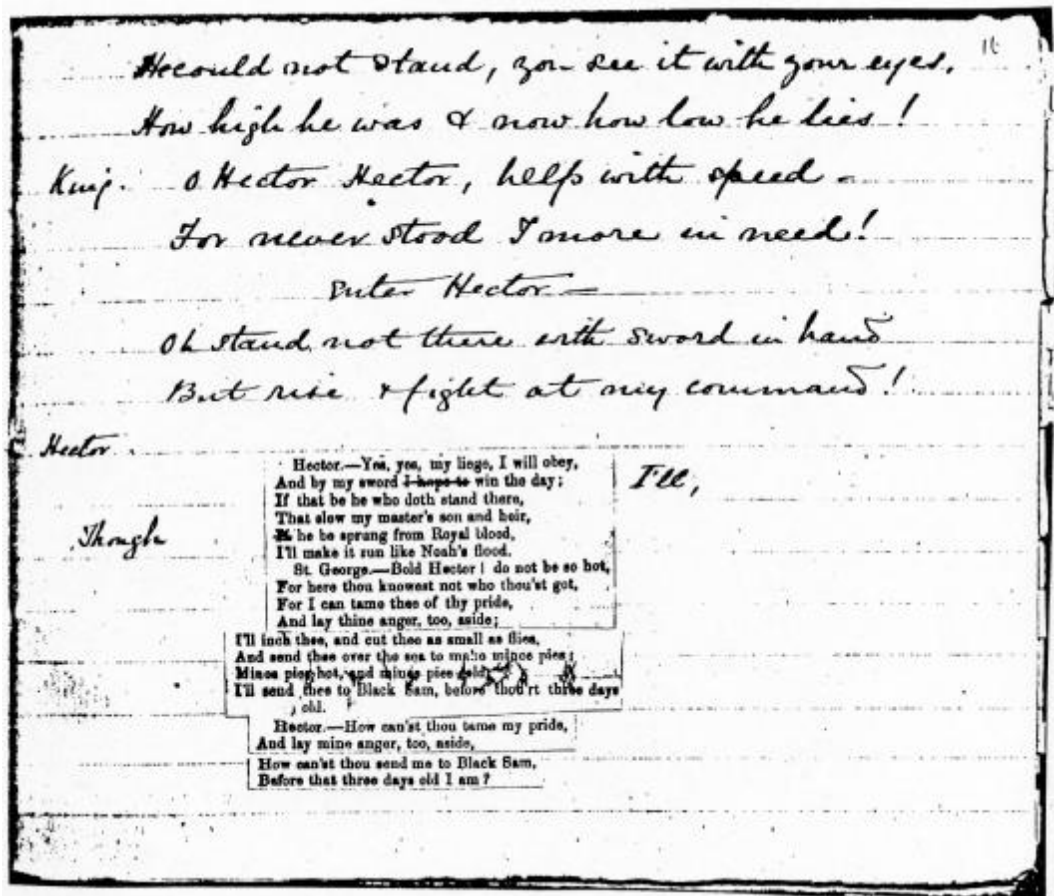 16
He could not stand, you see it with your eyes,
How high he was & now how low he lies!
King. O Hector Hector, help with speed –
For never stood I more in need!
Enter Hector —
Oh stand not there with sword in hand
But rise & fight at my command!
Hector.
Hector.—Yes, yes, my liege, I will obey,
And by my sword I hope to win the day; I'll,
If that be he who doth stand there,
That slew my master's son and heir,
Though he be sprung from Royal blood,
I'll make it run like Noah's flood.
St. George.—Bold Hector! do not be so hot,
For here thou knowest not who thou'st got,
For I can tame thee of thy pride,
And lay thine anger, too, aside;
I'll inch thee, and cut thee as small as flies,
And send thee over the sea to make mince pies;
Mince pies hot, and mince pies cold,
I'll send thee to Black Sam, before thou'rt three days
old.
Hector.—How can'st thou tame my pride,
And lay mine anger, too, aside,
How can'st thou send me to Black Sam,
Before that three days old I am?